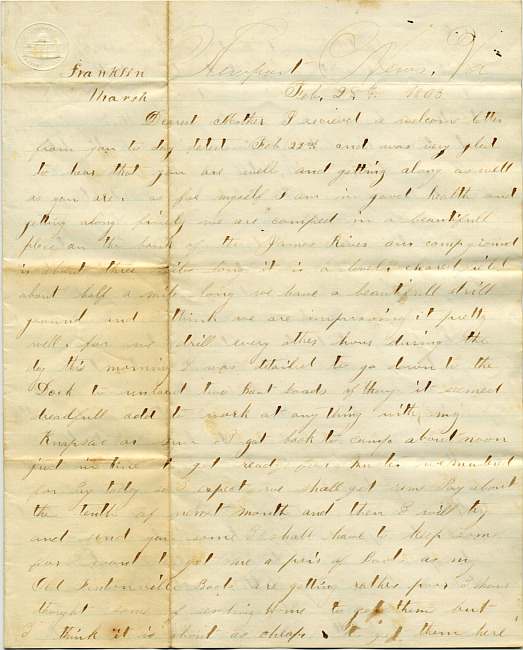 Franklin
March
Newport News, Va
Feb. 28th 1863
Dearest Mother I recieved a welcom letter
from you to day dated Feb 22nd and was very glad
to hear that you are well and getting along as well
as you are. as for myself I am in good health and
getting along finely we are camped in a beautifull
place on the bank of the James River our campground
is about three miles long it is a level field
about half a mile long we have a beautifull drill
ground and I think we are improving it pretty
well. for we drill every other hour during the
day this morning I was detailed to go down to the
Dock to unload two Boat loads of they it seemed
dreadfull odd to work at any thing with my
Knapsac on I got back to camp about noon
just in time to get ready for muster we mustered
for Pay today so I expect we shall get some Pay about
the tenth of next month and then I will try
and send you some I shall have to keep som
for I want to get me a pair of Boots as my
Old Fentonville Boots are getting rather poor I have
thought some of sending home to get them but
I think it is about as cheap to get them here